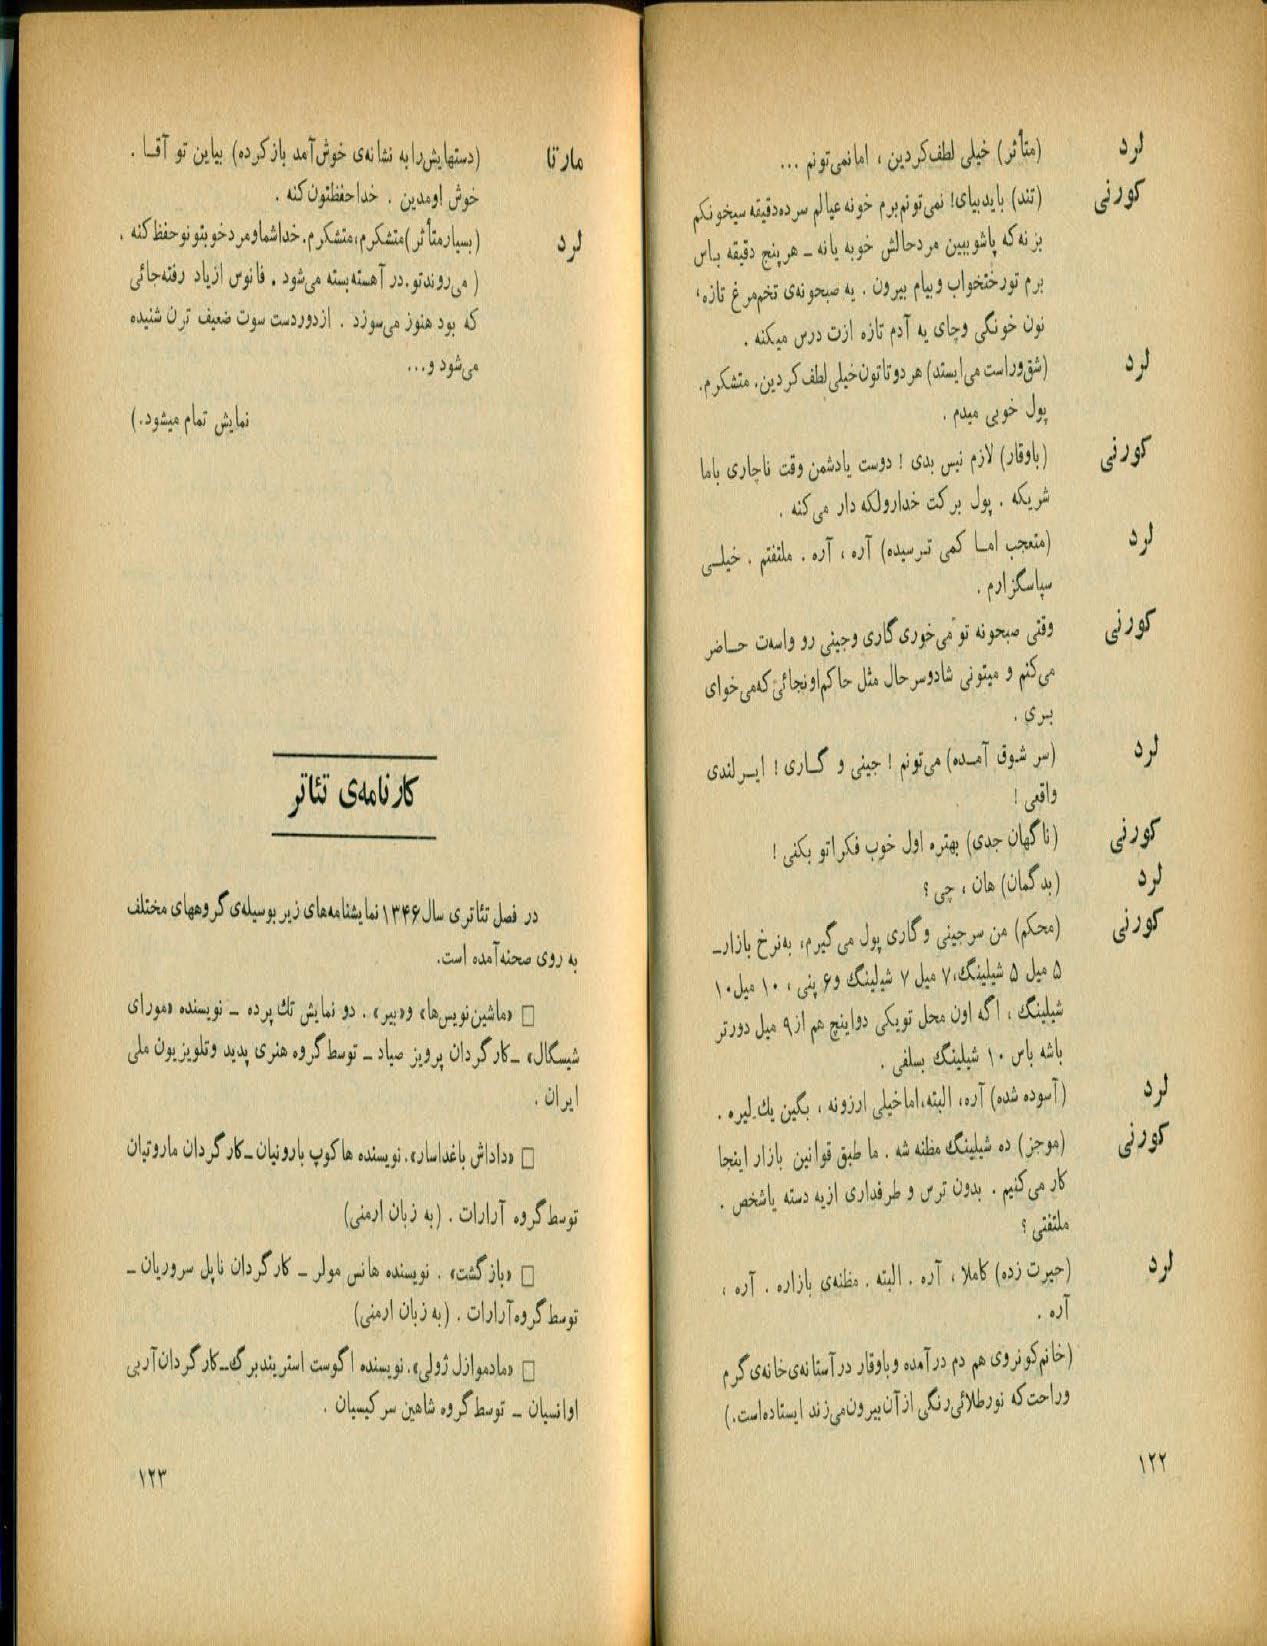 لرد (متأثر) خیلی لطف‌کردین ، اما نمی‌تونم ...
کورنی (تند) باید بیای! نمی‌تونم برم خونه عیالم سر ده دقیقه سیخونکم
بزنه که پاشو ببین مرد حالش خوبه یا نه ـ هر پنج دقیقه باس
برم تو رختخواب و بیام بیرون . یه صبحونه‌ی تخم‌مرغ تازه ،
نون خونگی و چای یه آدم تازه ازت درس میکنه .
لرد (شق و راست می‌ایستد) هر دو تاتون خیلی لطف کردین. متشکرم.
پول خوبی میدم .
کورنی (باوقار) لازم نیس بدی ! دوست یا دشمن وقت ناچاری با ما
شریکه . پول برکت خدا رو لکه دار می‌کنه .
لرد (متعجب امـا کمی ترسیده) آره ، آره . ملتفتم . خیلـی
سپاسگزارم .
کورنی وقتی صبحونه تو می‌خوری گاری و جینی رو واست حـاضر
می‌کنم و میتونی شاد و سر حال مثل حاکم اونجائی که می‌خوای
بری .
لرد (سر شوق آمـده) می‌تونم ! جینی و گـاری ! ایـرلندی
واقعی !
کورنی (ناگهان جدی) بهتره اول خوب فکراتو بکنی !
لرد (بدگمان) هان ، چی ؟
کورنی (محکم) من سر جینی و گاری پول می‌گیرم، به نرخ بازارـ
۵ میل ۵ شیلینگ، ۷ میل ۷ شیلینگ و ۶ پنی ، ۱۰ میل ۱۰
شیلینگ ، اگه اون محل تو یکی دو اینچ هم از ۹ میل دورتر
باشه باس ۱۰ شیلینگ بسلفی .
لرد (آسوده شده) آره، البته، اما خیلی ارزونه ، بگین یك لیره .
کورنی (موجز) ده شیلینگ مظنه شه . ما طبق قوانین بازار اینجا
کار می‌کنیم . بدون ترس و طرفداری از یه دسته یا شخص .
ملتفتی ؟
لرد (حیرت زده) کاملا ، آره . البته . مظنه‌ی بازاره . آره ،
آره .
(خانم کونروی هم دم در آمده و باوقار در آستانه‌ی خانه‌ی گرم
و راحت که نور طلائی رنگی از آن بیرون می‌زند ایستاده است.)
۱۲۲
مارتا (دستهایش را به نشانه‌ی خوش‌آمد باز کرده) بیاین تو آقـا .
خوش اومدین . خدا حفظتون کنه .
لرد (بسیار متأثر) متشکرم، متشکرم. خدا شما و مرد خوبتونو حفظ کنه .
( می‌روند تو. در آهسته بسته می‌شود . فانوس از یاد رفته جائی
که بود هنوز می‌سوزد . از دور دست سوت ضعیف ترن شنیده
می‌شود و...
نمایش تمام میشود.)
کارنامه‌ی تئاتر
در فصل تئاتری سال ۱۳۴۶ نمایشنامه‌های زیر بوسیله‌ی گروههای مختلف
به روی صحنه آمده است.
□ «ماشین نویس‌ها» و «ببر» . دو نمایش تك پرده ـ نویسنده «مورای
شیسگال» ـ کارگردان پرویز صیاد ـ توسط گروه هنری پدید و تلویزیون ملی
ایران .
□ «داداش باغداسار». نویسنده هاکوپ بارونیان ـ کارگردان ماروتیان
توسط گروه آرارات . (به زبان ارمنی)
□ «بازگشت» . نویسنده هانس مولر ـ کارگردان ناپل سروریان ـ
توسط گروه آرارات . (به زبان ارمنی)
□ «مادموازل ژولی». نویسنده اگوست استریندبرگ ـ کارگردان آربی
اوانسیان ـ توسط گروه شاهین سرکیسیان .
۱۲۳